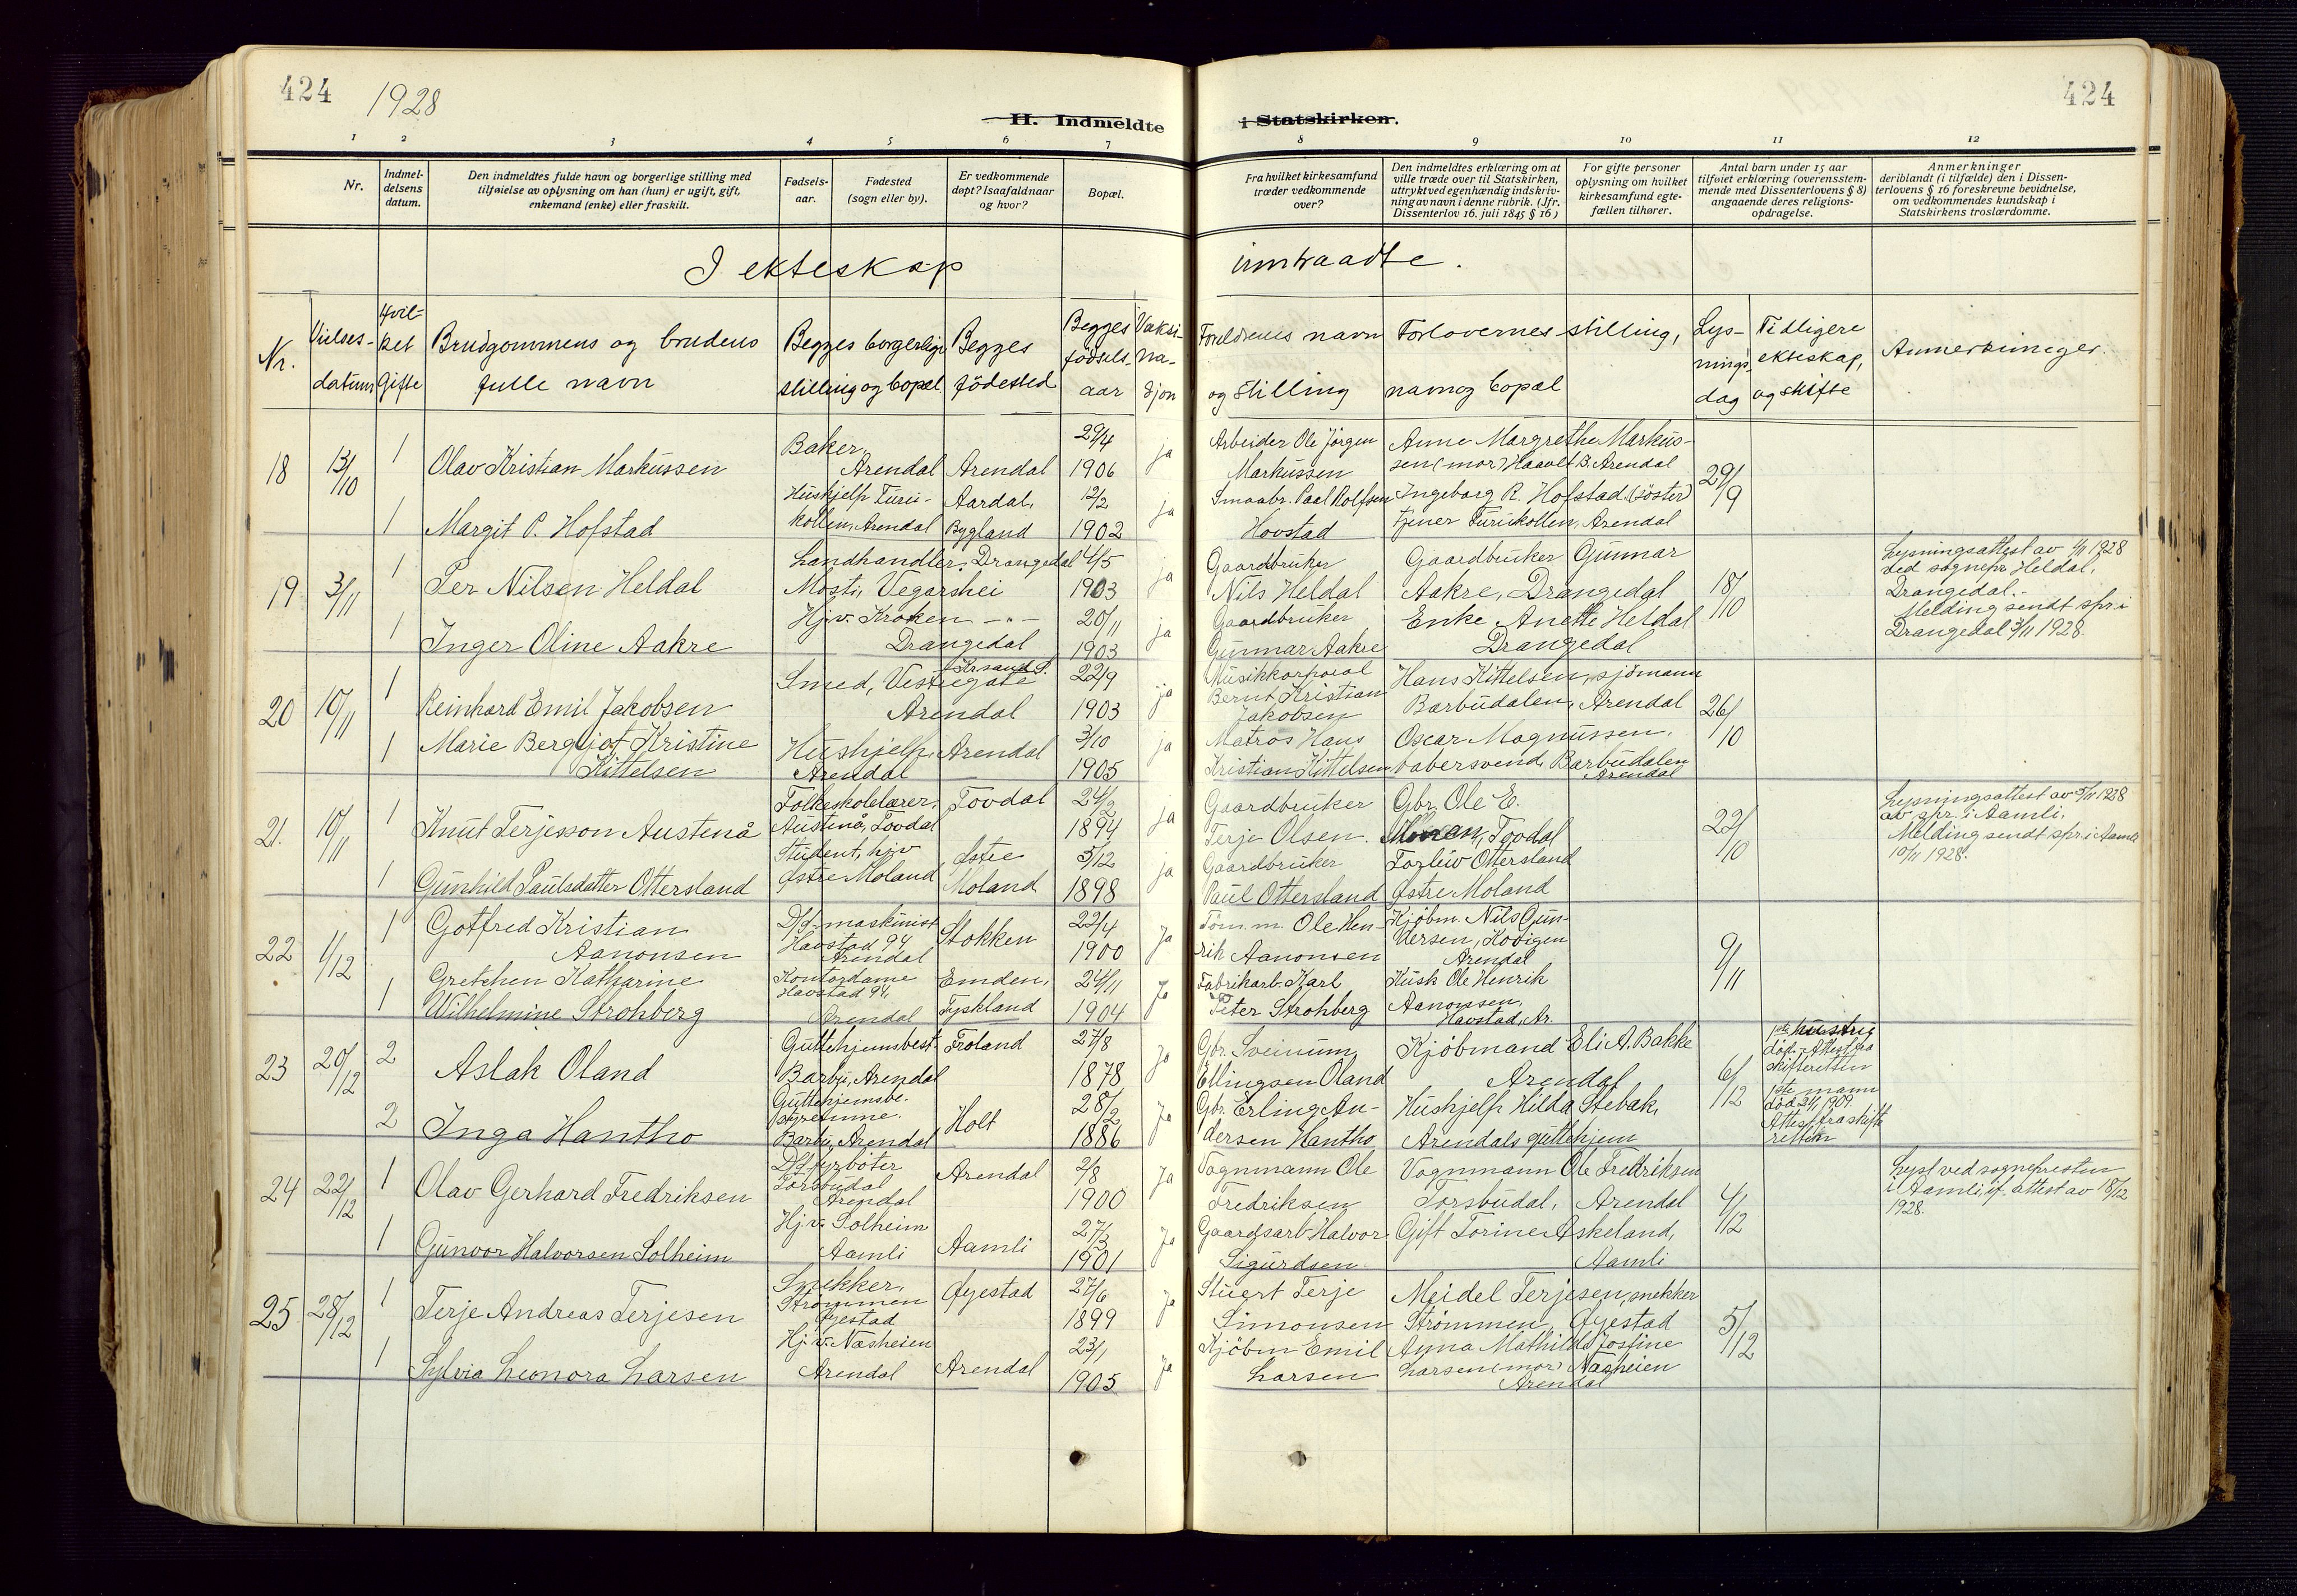 424
1928
424
II. Indmeldte
i Statskirken.
1 2 3 4 5 6 7
8 9 10 11 12
Nr.
Indmel-
delsens
datum.
Den indmeldtes fulde navn og borgerlige stilling med
tilføielse av oplysning om han (hun) er ugift, gift,
enkemand (enke) eller fraskilt.
Fødsels-
aar.
Fødested
(sogn eller by).
Er vedkommende
døpt? Isaafald naar
og hvor?
Bopæl.
Fra hvilket kirkesamfund
træder vedkommende
over?
Den indmeldtes erklæring om at
ville træde over til Statskirken,
uttrykt ved egenhændig indskriv-
ning av navn i denne rubrik. (Jfr.
Dissenterlov 16. juli 1845 § 16)
For gifte personer
oplysning om hvilket
kirkesamfund egte-
fællen tilhører.
Antal barn under 15 aar
tilføiet erklæring (overensstem-
mende med Dissenterlovens § 8)
angaaende deres religions-
opdragelse.
Anmerkninger
deriblandt (i tilfælde) den i Dissen-
terlovens § 16 foreskrevne bevidnelse,
om vedkommendes kundskap i
Statskirkens troslærdomme.
I ekteskap
inntraadte.
Nr.
Vielses-
datum
Hvil-
ket
Gifte
Brudgommens og brudens
fulle navn
Begges borgerlige
stilling og bopæl.
Begges
fødested
Begges
fødsels-
aar
Vaksi-
na-
sjon
Foreldrenes navn
og stilling
Forlovernes stilling,
navn og bopæl
Lys-
nings-
dag
Tidligere
ekteskap,
og skifte
Anmerkninger.
18
13/10
1
Olav Kristian Markussen
Baker,
Arendal
Arendal
29/4
1906
ja
Arbeider Ole Jörgen
Markussen
Anne Margrethe Markus-
sen (mor) Haavet B. Arendal
29/9
1
Margit P. Hofstad
Hushjelp Furu-
kollen, Arendal
Aardal,
Bygland
12/2
1902
ja
Smaabr. Paal Rolfsen
Hovstad
Ingeborg R. Hofstad (söster)
tjener Furukollen, Arendal
19
3/11
1
Per Nilsen Heldal
Landhandler,
Mosti, Vegarshei
Drangedal
4/5
1903
ja
Gaardbruker
Nils Heldal
Gaardbruker Gunnar
Aakre, Drangedal
18/10
Lysningsattest av 1/11 1928
ved sognepr. Heldal,
Drangedal.-
Melding sendt spr. i
Drangedal 3/11 1928.
1
Inger Oline Aakre
Hjv. Kroken
Drangedal
- " -
20/11
1903
ja
Gaardbruker
Gunnar Aakre
Enke Anette Heldal
Drangedal
20
10/11
1
Reinhard Emil Jakobsen
Smed, Vestregate
Arendal
Krsand S.
22/9
1903
ja
Musikkorporal
Bernt Kristian
Jakobsen
Hans Kittelsen, sjömann
Barbudalen, Arendal
26/10
1
Marie Bergljot Kristine
Kittelsen
Hushjelp,
Arendal
Arendal
3/10
1905
ja
Matros Hans
Kristian Kittelsen
Oscar Magnussen,
Barbudalen
Arendal
21.
10/11
1
Knut Terjesson Austenå
Folkeskolelærer,
Austenå, Tovdal
Tovdal
24/2
1894
ja
Gaardbruker
Terje Olsen.
Gbr. Ole E.
Tovdal
22/10
Lysningsattest av 5/11 1928
av spr. i Aamli.
Melding sendt spr. i Aamli
10/11 1928.
1
Gunhild Paulsdatter Ottersland
Student, hjv
Østre Moland
Østre
Moland
5/12
1898
ja
Gaardbruker
Paul Ottersland
Torleiv Ottersland
Østre Moland
22
1/12
1
Gotfred Kristian
Aanonsen
D/s-maskinist
Havstad 94
Arendal
Stokken
22/4
1900
ja
Töm.m. Ole Hen-
rik Aanonsen
Kjöbm. Nils Gun-
dersen, Kovigen
Arendal
9/11
1
Gretchen Katharine
Wilhelmine Strohberg
Kontordame
Havstad 94,
Arendal
Emden,
Tyskland
24/11
1904
ja
Fabrikarb. Karl
Peter Strohberg
Kusk Ole Henrik
Aanonsen,
Havstad, Ar.
23
20/12
2
Aslak Oland
Guttehjemsbest.
Barbu, Arendal
Froland
27/8
1878
ja
Gbr. Sveinum
Ellingsen Oland
Kjöbmand Eli A. Bakke
Arendal
6/12
1ste hustru
död. Attest fra
skifteretten
2
Inga Hantho
Guttehjemsbe-
styrerinne.
Barbu, Arendal
Holt
28/2
1886
ja
Gbr. Erling An-
dersen Hantho
Hushjelp Hilda Stebak,
Arendals guttehjem
1ste mann
död 24/1 1909.
Attest fra skifte
retten
24
22/12
1
Olav Gerhard Fredriksen
D/s fyrböter
Torsbudal
Arendal
Arendal
2/8
1900
ja
Vognmann Ole
Fredriksen
Vognmann Ole Fredriksen
Torsbudal, Arendal
4/12
Lyst ved sognepresten
i Aamli, if. attest av 18/12
1928.
1
Gunvor Halvorsen Solheim
Hjv. Solheim
Aamli
Aamli
27/3
1901
ja
Gaardsarb. Halvor
Sigurdsen
Gift Torine Askeland,
Aamli
25
28/12
1
Terje Andreas Terjesen
Snekker,
Strömmen
Øyestad
Øyestad
27/6
1899
ja
Stuert Terje
Simonsen
Meidel Terjesen, snekker
Strömmen, Øyestad
5/12
1
Sylvia Leonora Larsen
Hj.v. Næsheien
Arendal
Arendal
23/1
1905
ja
Kjöbm Emil
Larsen
Anna Mathilde Josfine
Larsen (mor) Næsheien
Arendal